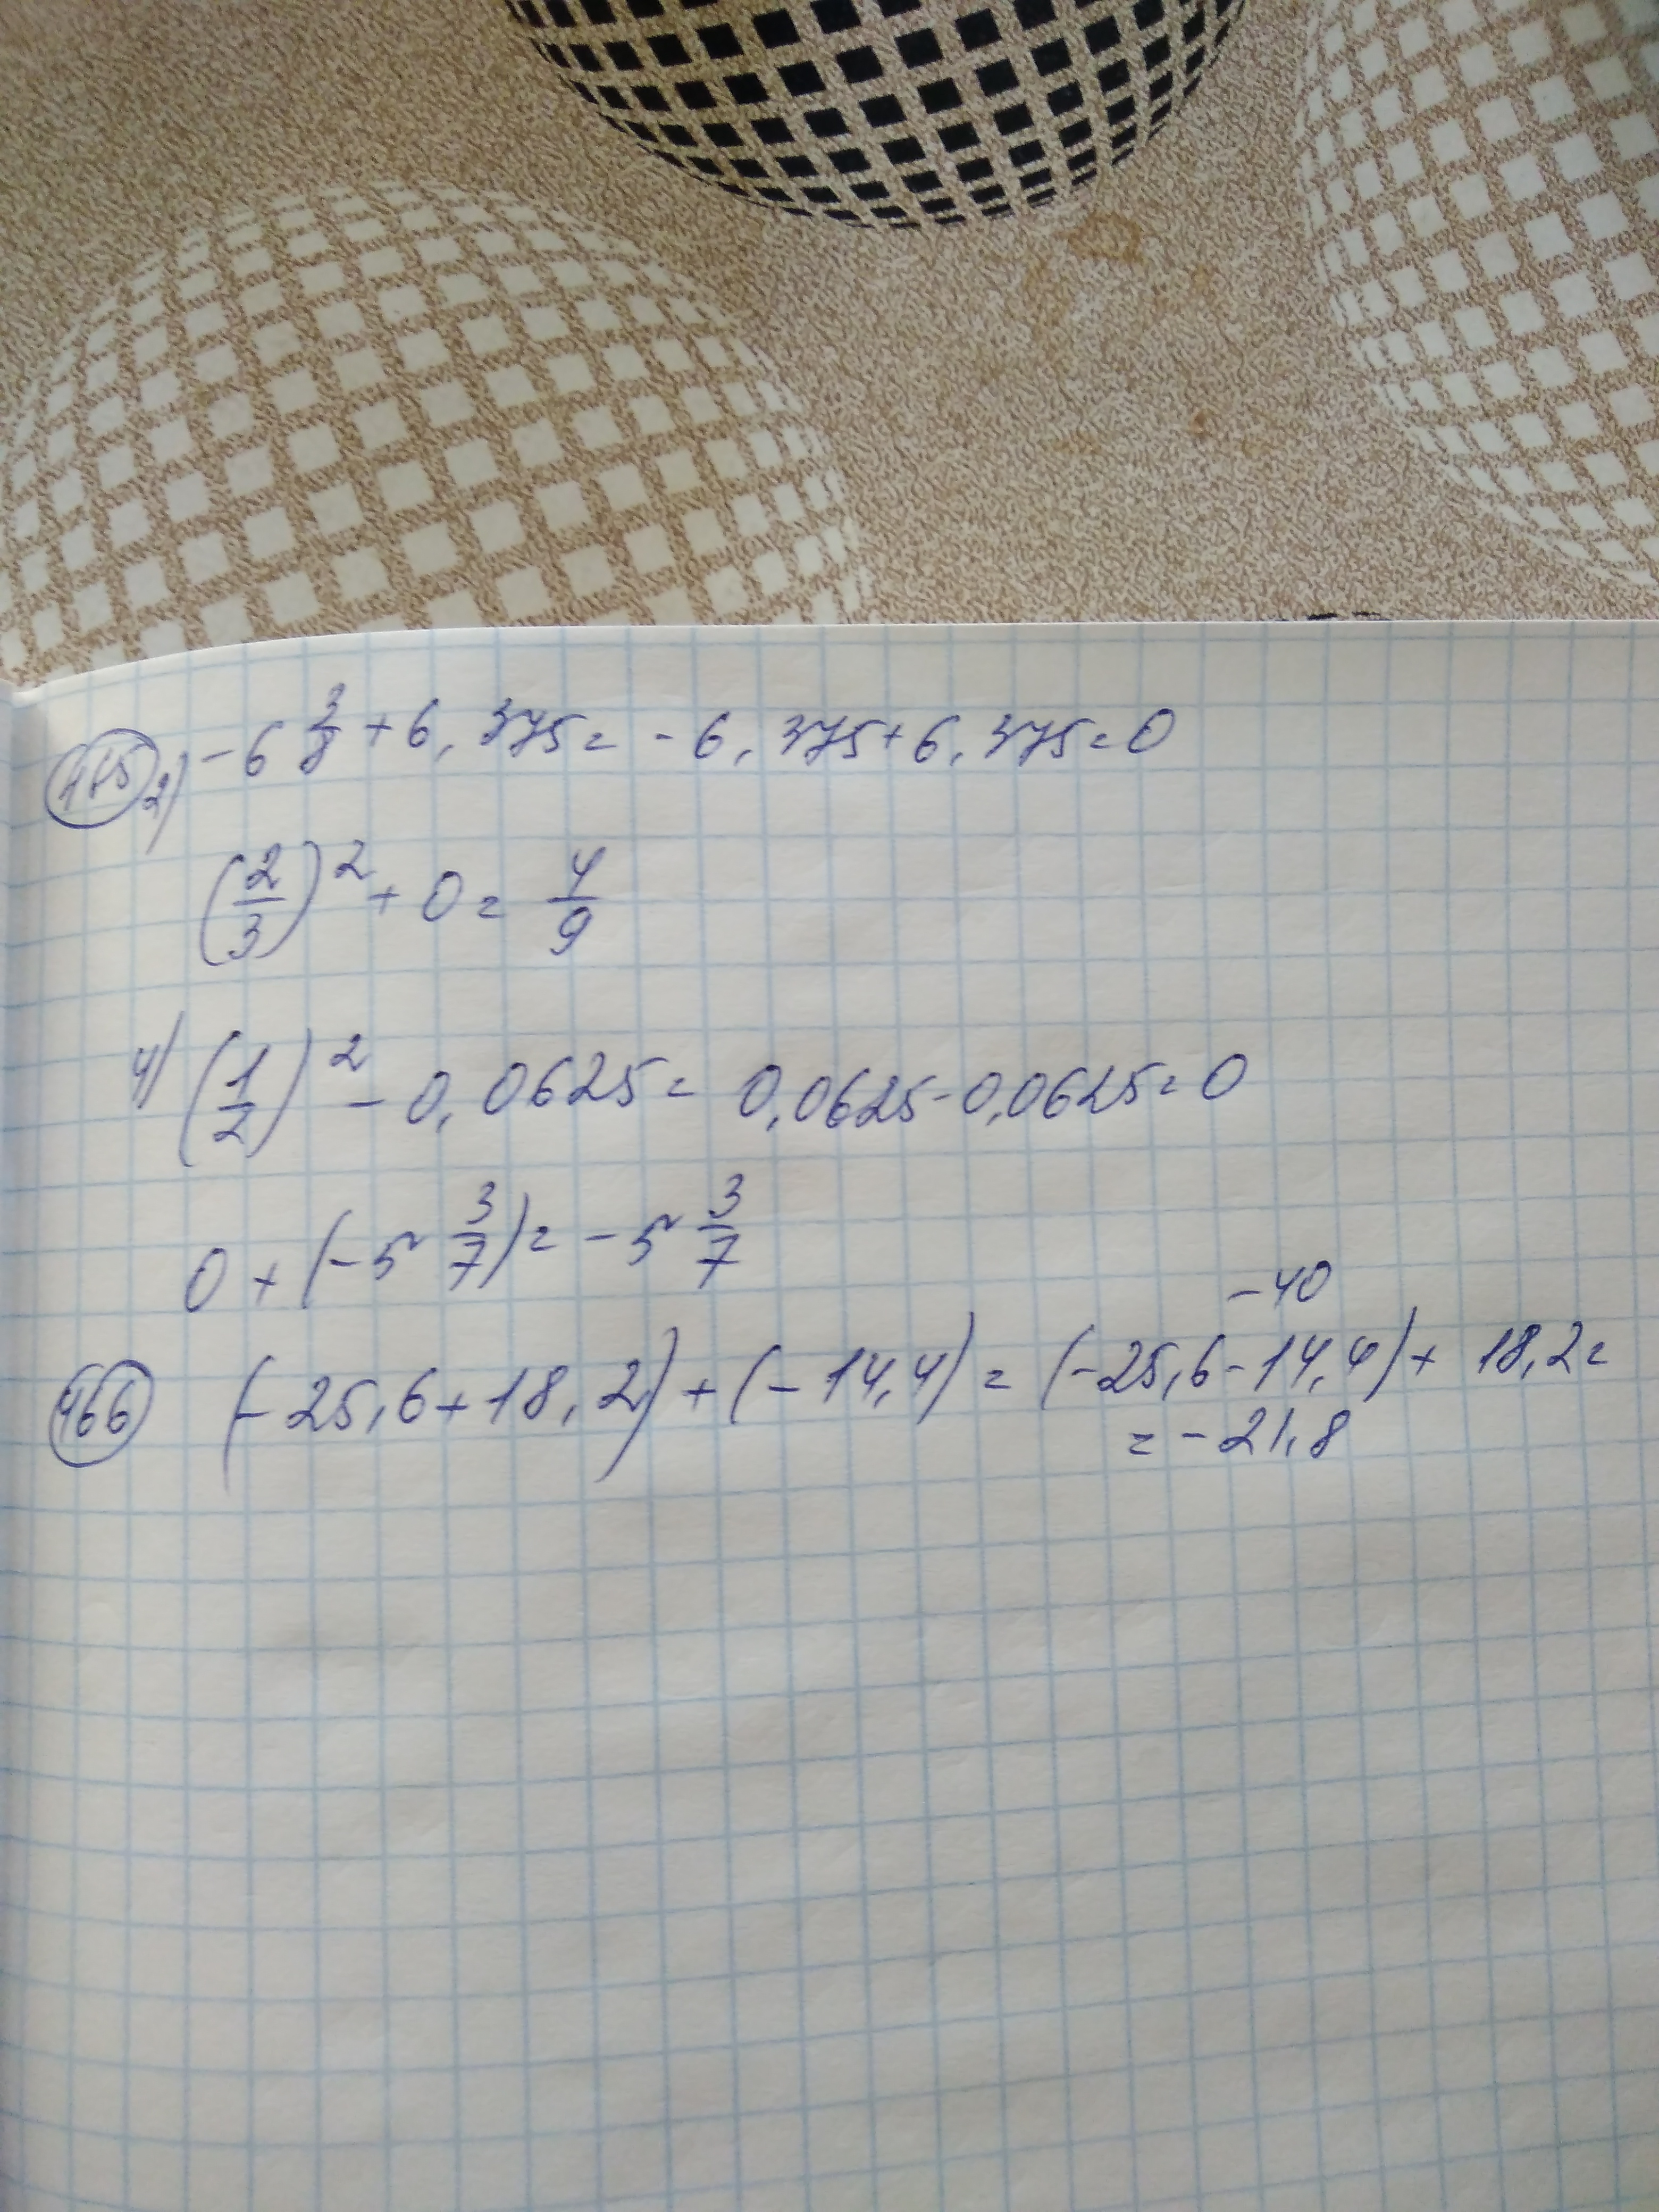 2) -6 3/8 + 6,375 = -6,375 + 6,375 = 0
(2/3)² + 0 = 4/9
4) (1/2)² - 0,0625 = 0,0625 - 0,0625 = 0
0 + (-5 3/7) = -5 3/7
-40
466 (-25,6 + 18,2) + (-14,4) = (-25,6 - 14,4) + 18,2 =
= -21,8